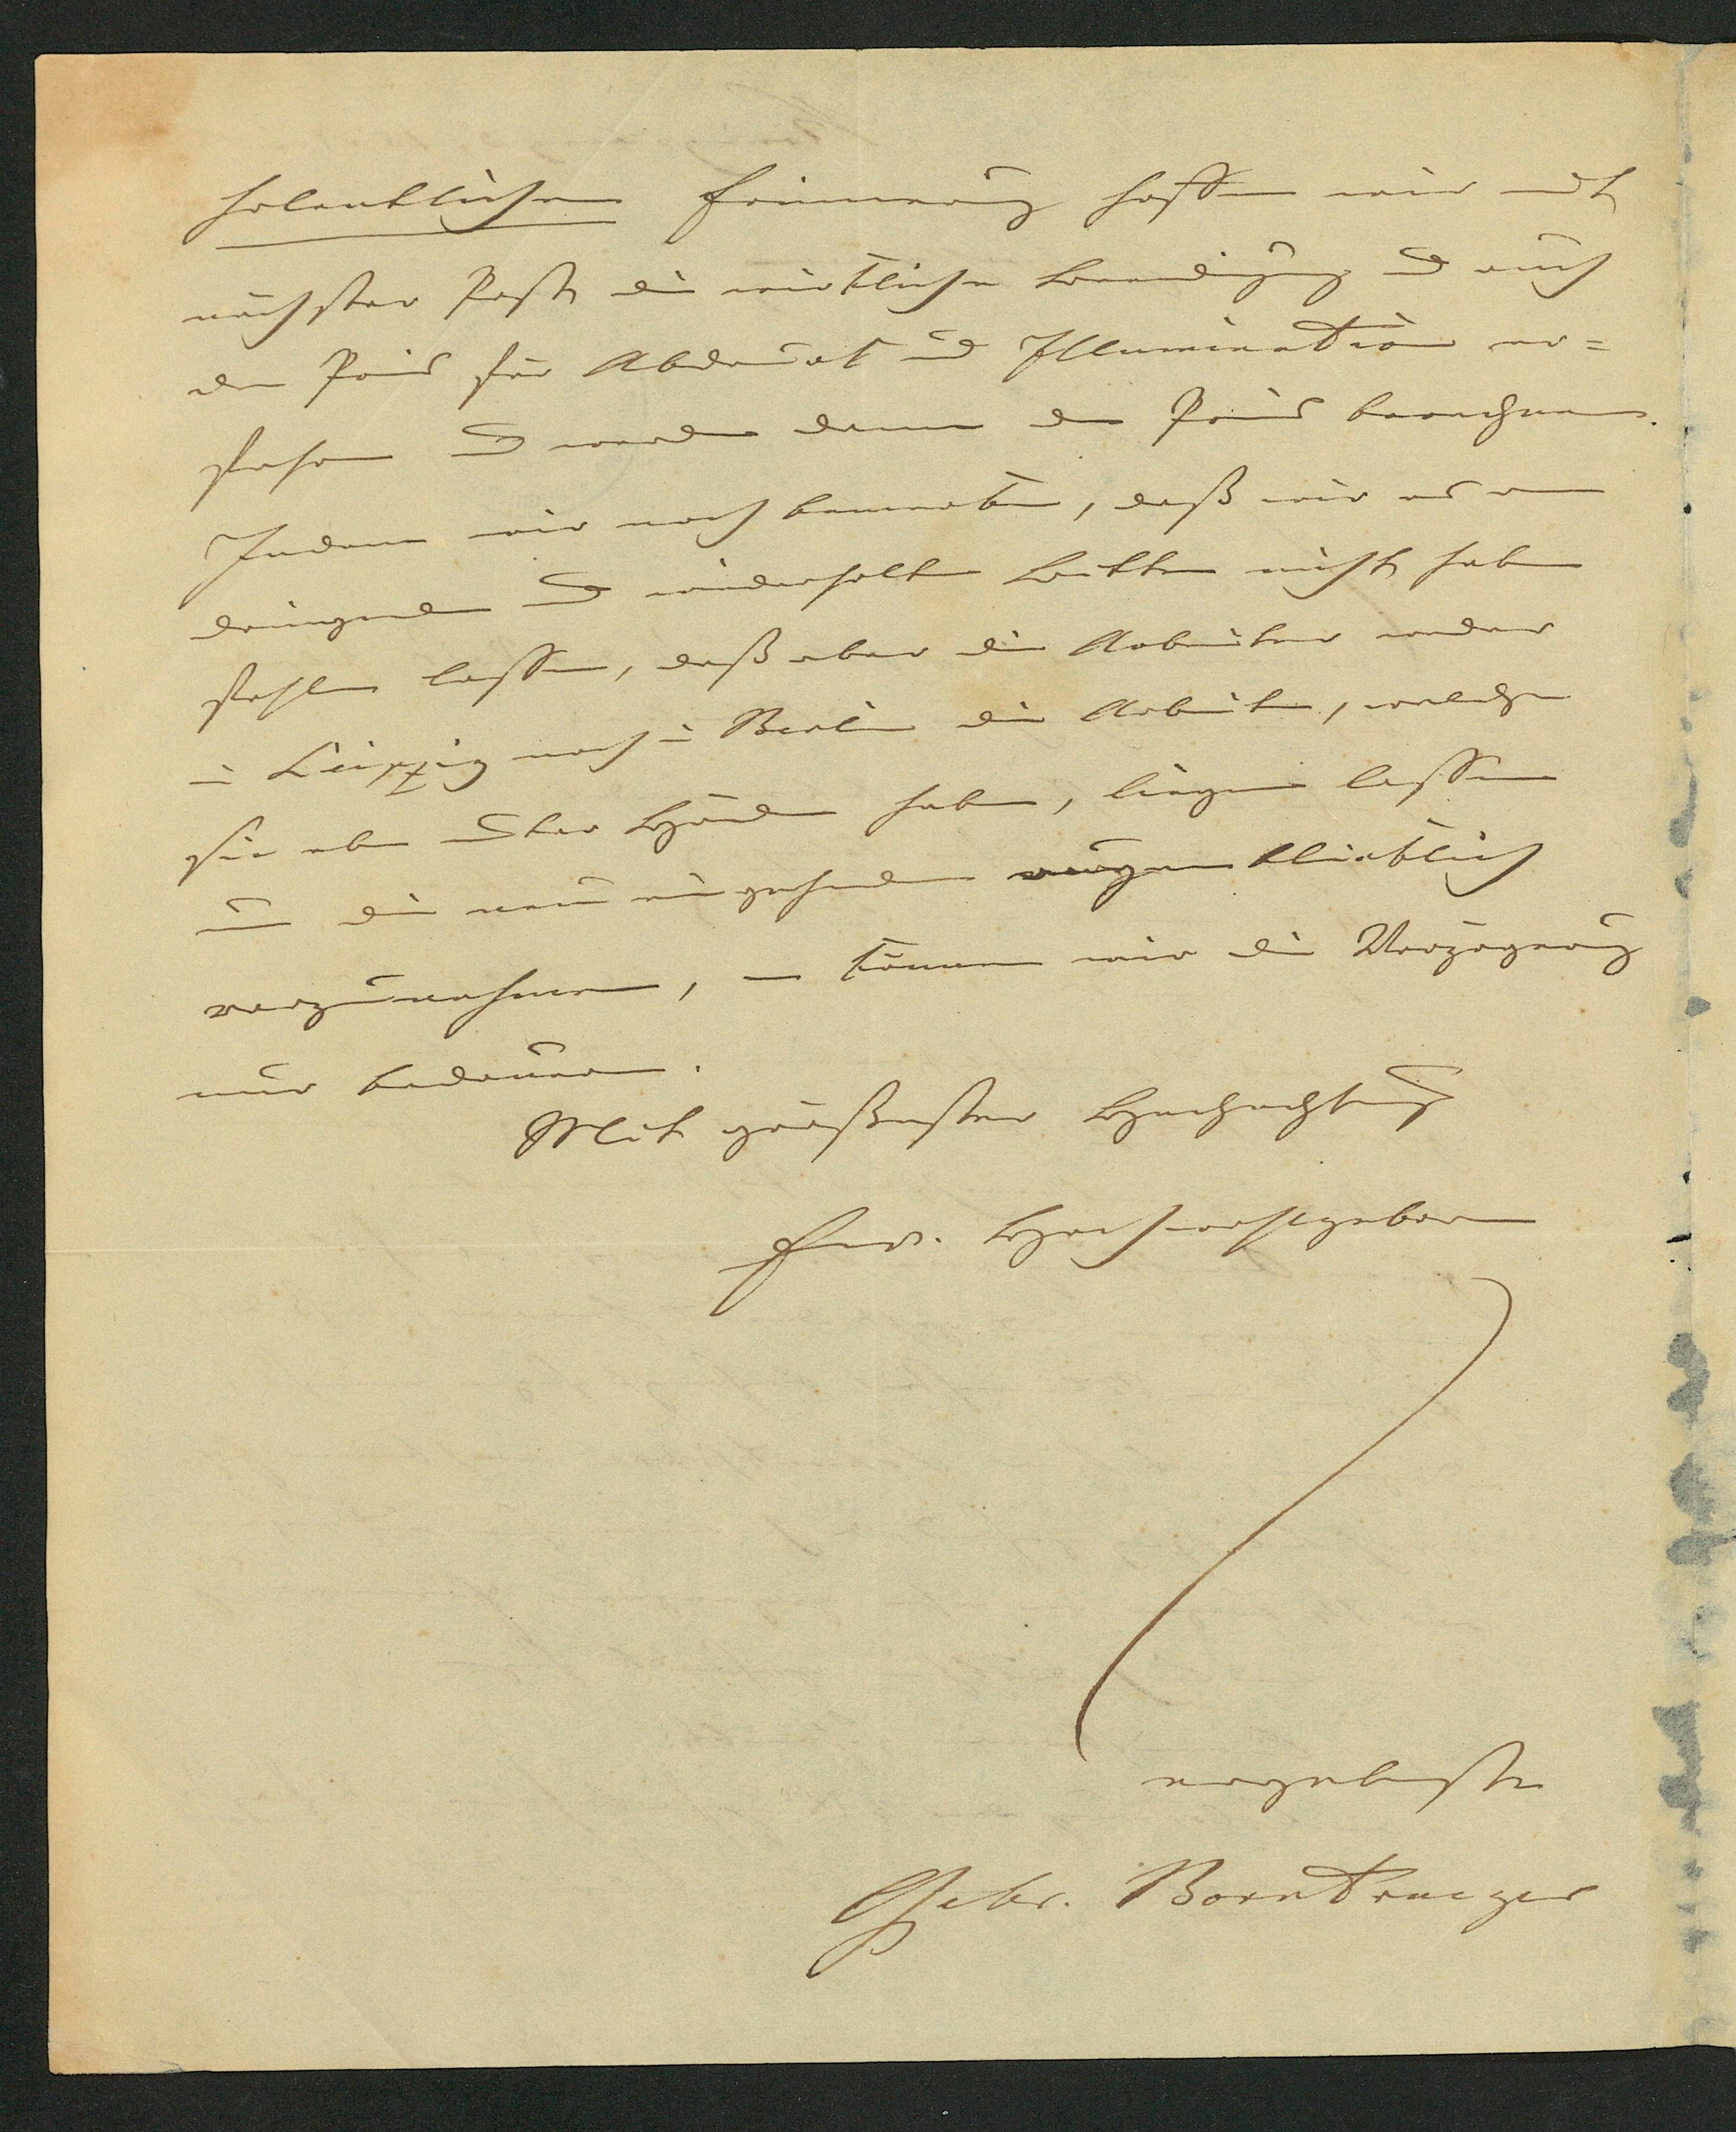 holentlichen Erinnerung hoffen wir mit
nächster Post die wirkliche Beendigung und auch
den Preis für Abdruck und Illumination er=
sehen und werden dann den Preis berechnen.
Indem wir noch bemerken, daß wir es an
dringenden und wiederholten Bitten nicht haben
fehlen lassen, daß aber die Arbeiter weder
in Leipzig noch in Berlin die Arbeiten, welche
sie eben unter Händen haben, liegen lassen
um die neu eingehenden augenblicklich
vorzunehmen, – können wir die Verzögerung
nur bedauern.
Mit größester Hochachtung
Ew. Hochwohlgeboren
ergebenste
Gebr. Borntraeger